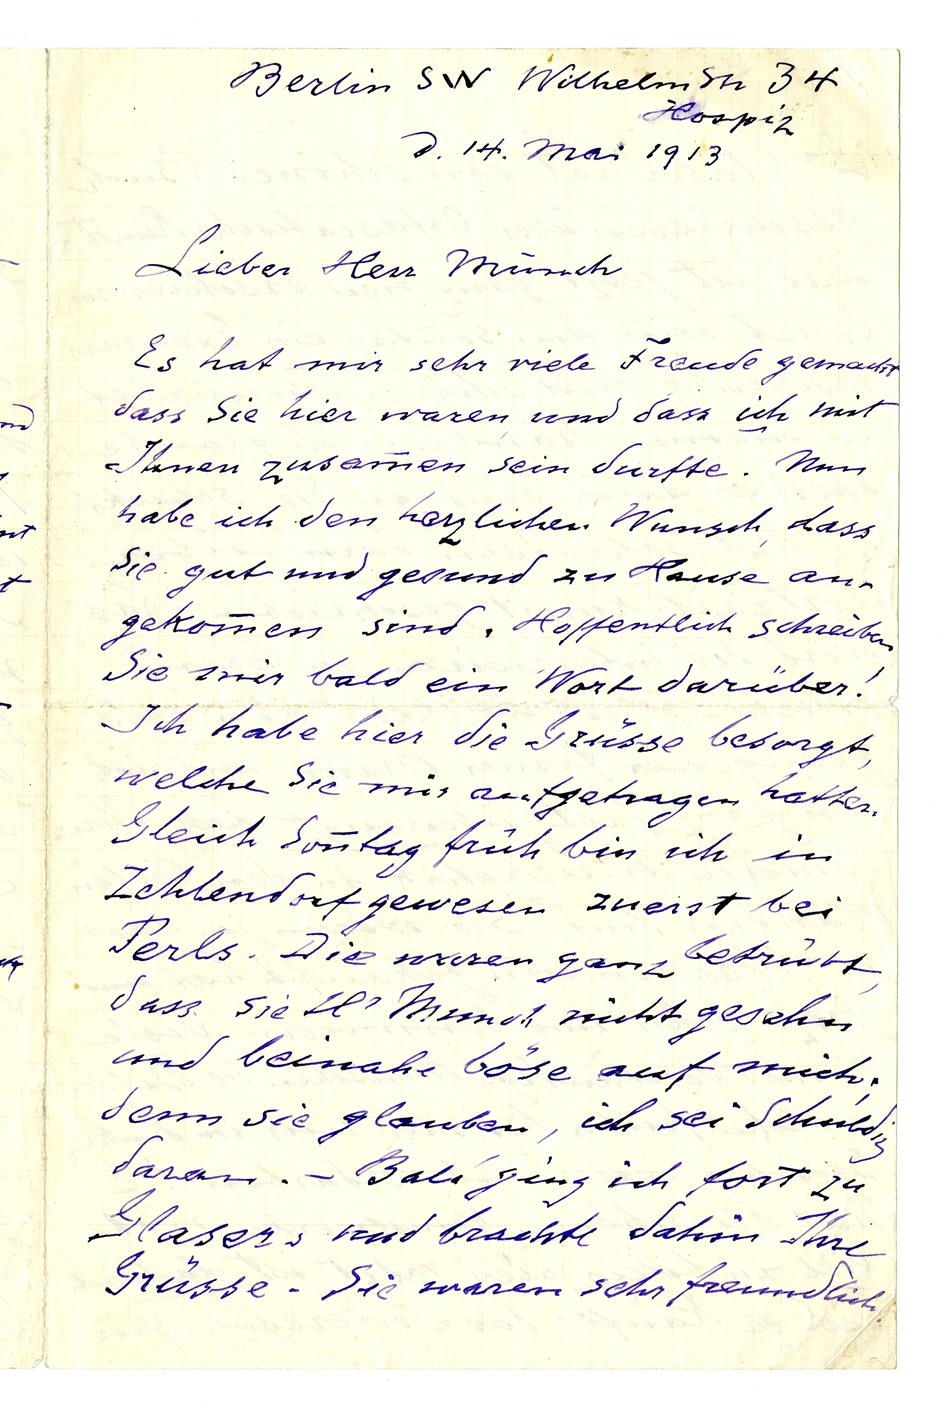 Berlin SW Wilhelmstr 34
Hospiz
d. 14. Mai 1913
Lieber Herr Munch
Es hat mir sehr viele Freude gemacht
dass Sie hier waren und dass ich mit
Ihnen zusam̄en sein durfte. Nun
habe ich den herzlichen Wunsch, dass
Sie gut und gesund zu Hause an-
gekom̄en sind. Hoffentlich schreiben
Sie mir bald ein Wort darüber!
Ich habe hier die Grüsse besorgt,
welche Sie mir aufgetragen hatten.
Gleich Son̄tag früh bin ich in
Zehlendorf gewesen zuerst bei
Perls. Die waren ganz betrübt,
dass sie Hr Munch nicht gesehn
und beinahe böse auf mich,
denn sie glauben, ich sei schuldig
daran. – Bald ging ich fort zu
Glasers und brachte dahin Ihre
Grüsse – Sie waren sehr freundlich.